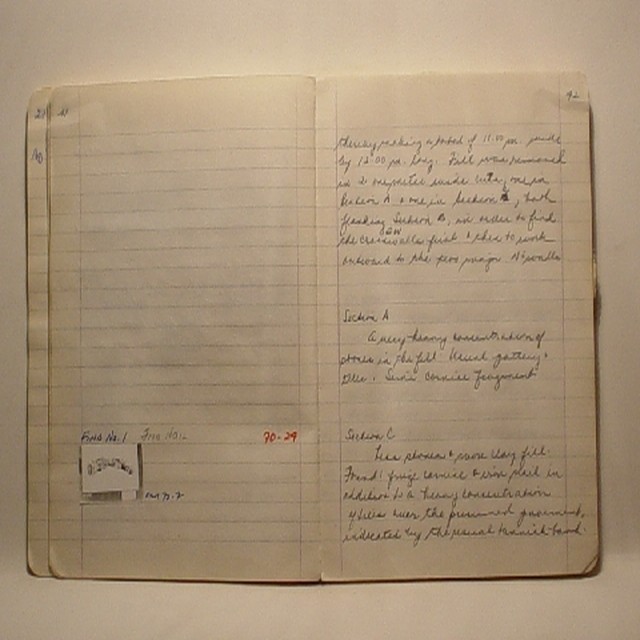 Find No. 1 Find No. 2 70-29
92
thereby making a total of 11.00 m. wide
by 12.00 m. long. Fill was removed
in 2 one meter wide cuts, one in
Section A & one in Section, both
flanking Section B, in order to find
the EW crosswalls first & then to work
outward to the two major NS walls
Section A
A very heavy concentration of
stones in the fill. Usual pottery &
tiles. Some cornice fragments
Section C
Less stones & more clay fill.
Found: frieze cornice & iron nail in
addition to a heavy concentration
of tiles over the presumed pavement,
indicated by the usual band.